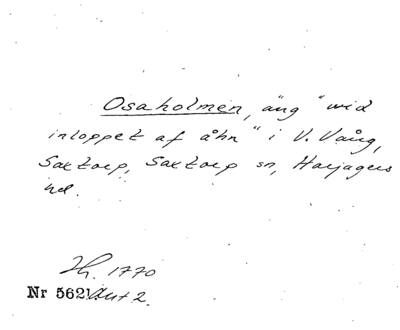 Osaholmen, äng "vid
inloppet af åhn" i V. Vång,
Saxtorp, Saxtorp sn, Harjagers
hd.
1770
Nr 5621 Akt 2.